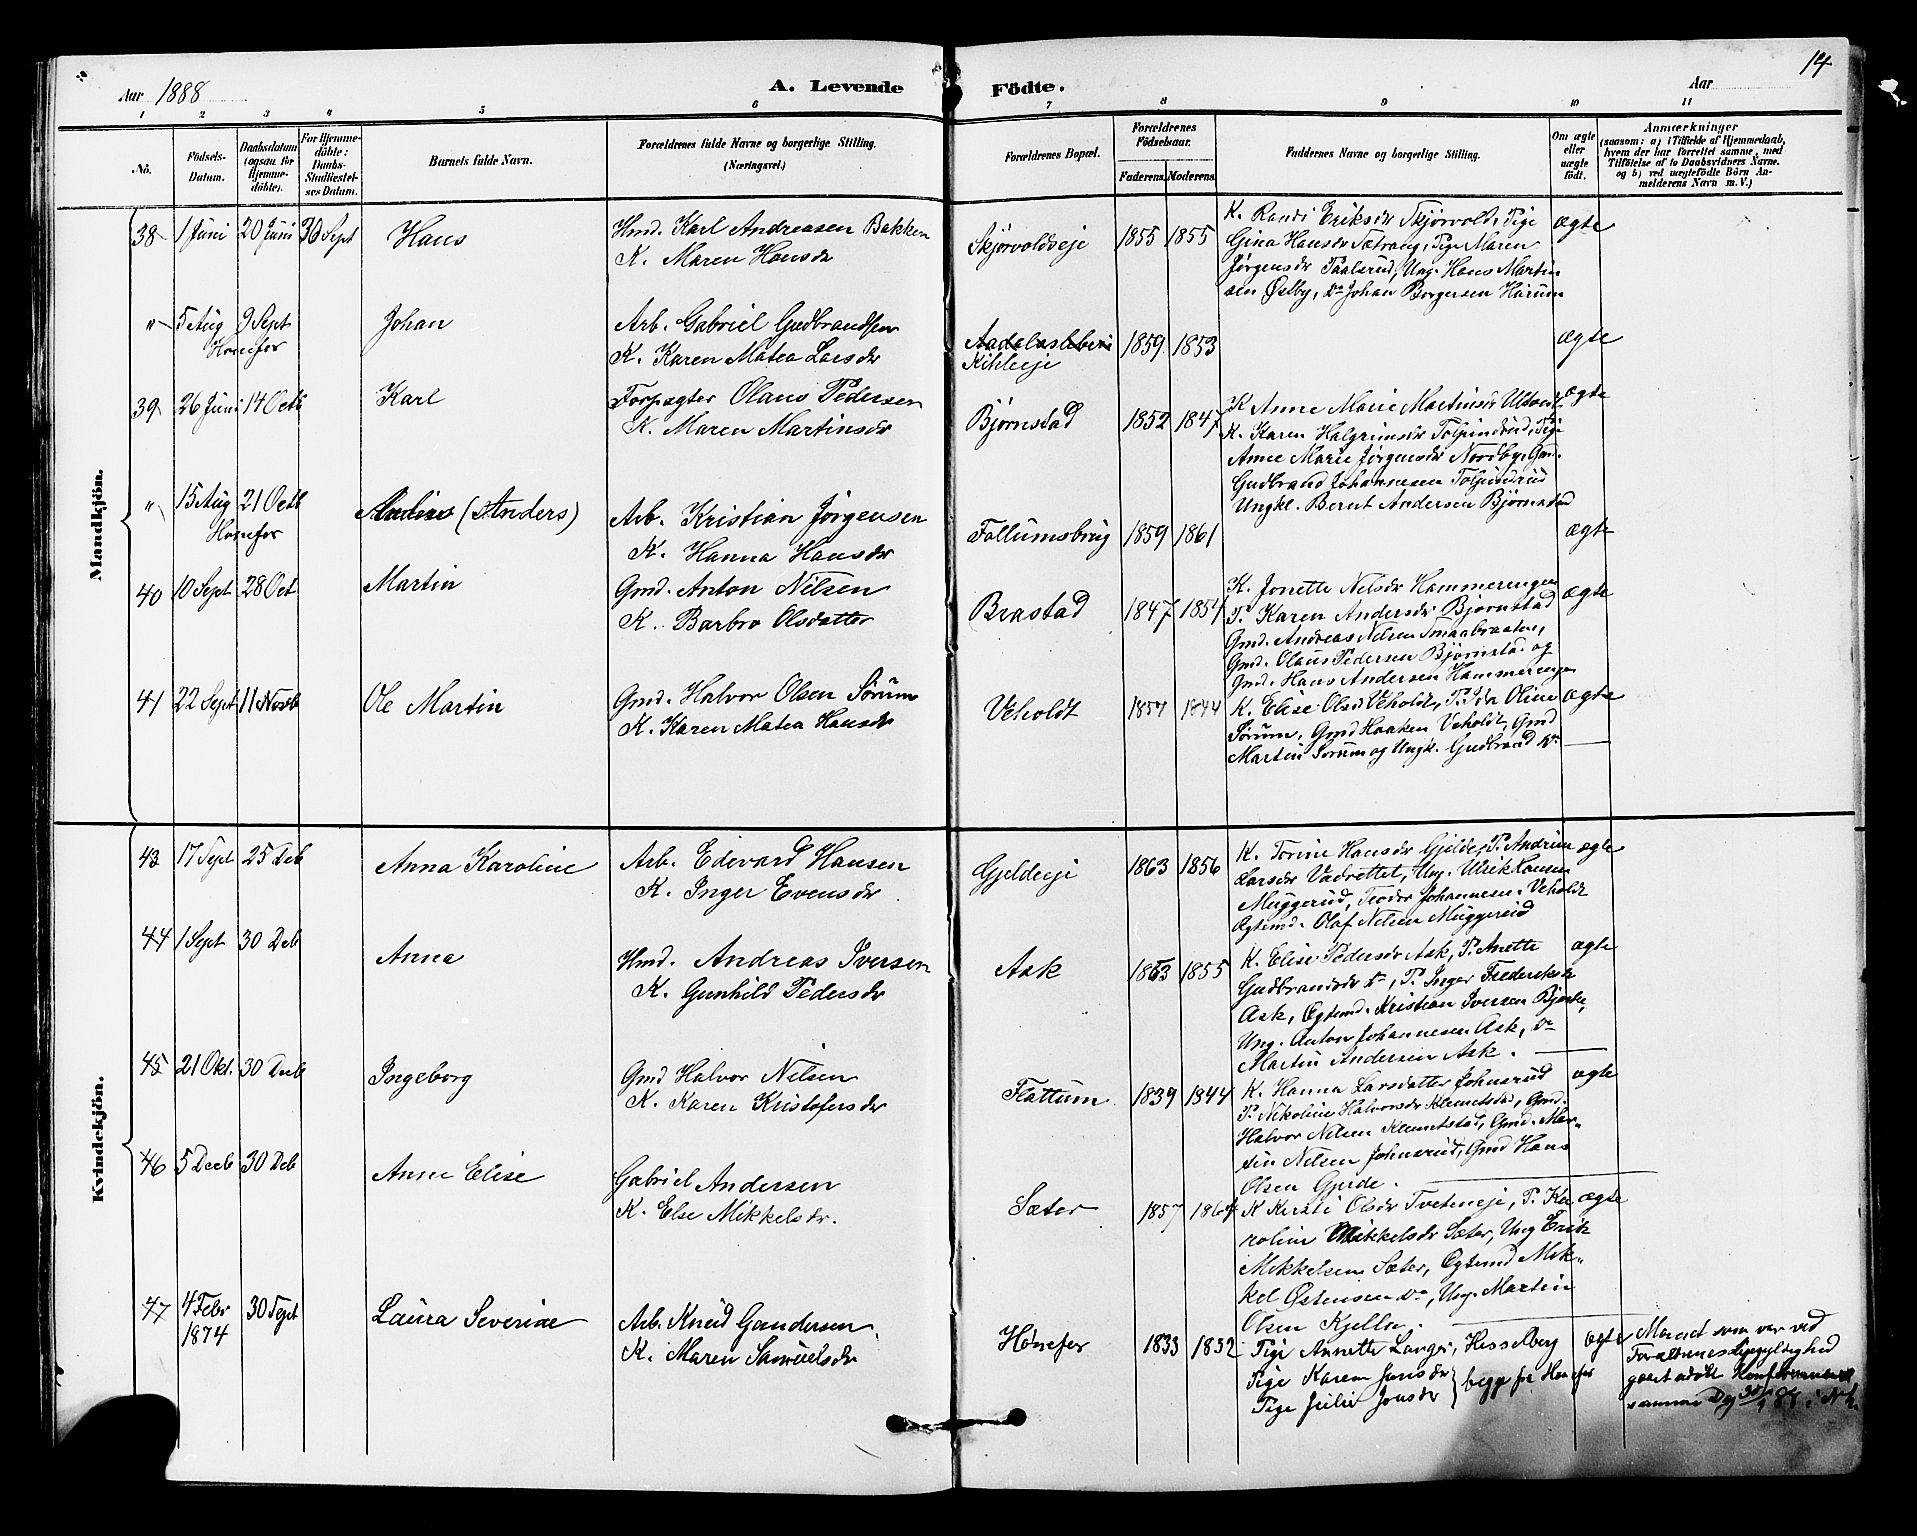 14
Aar 1888
A. Levende Födte.
Aar
1 2 3 4 5 6 7 8 9 10 11
No.
Födsels-Datum.
Daabsdatum (ogsaa for Hjemmedöbte).
For Hjemmedöbte: Daabs-Stadfæstelses Datum.
Barnets fulde Navn.
Forældrenes fulde Navne og borgerlige Stilling. (Næringsvei.)
Forældrenes Bopæl.
Forældrenes Födselsaar.
Faderens. Moderens.
Faddernes Navne og borgerlige Stilling.
Om ægte eller uægte födt.
Anmærkninger
(saasom: a) i Tilfælde af Hjemmedaab, hvem der har forrettet samme, med Tilföielse af to Daabsvidners Navne. og b) ved uægtefödte Börn Anmelderens Navn m. V.)
Mandkjön.
38 1 Juni 20 Juni 30 Sept Hans
Hmd. Karl Andreasen Bakken
K. Maren Hansdr
Skjørvoldveje 1855 1855
K. Randi Eriksdr Skjørvold, Pige
Gina Hansdr Sætrang, Pige Maren
Jørgensdr Paalsrud, Ung. Hans Martin
sen Østby, Do Johan Borgersen Hurum
ægte
" 5 Aug 9 Sept Johan
Honefos
Arb. Gabriel Gudbrandsen
K. Karen Matea Larsdr
Kihleeje 1859 1853 ægte
39 26 Juni 14 Octb Karl
Forpagter Olaus Pedersen
K. Maren Martinsdr
Bjørnstad 1852 1847
K Anne Marie Martinsdr
K. Karen Halgrimsdr Tolpinsrud, Pige
Anne Marie Jørgensdr Nordby, Gm.
Gudbrand Johannesen Tolpinsrud
Ungkl. Bernt Andersen Bjørnstad
ægte
" 15 Aug 21 Octb (Anders)
Honefos
Arb. Kristian Jørgensen
K. Hanna Hansdr
Follumsbrug 1859 1861 ægte
40 10 Sept 28 Oct Martin
Gmd. Anton Nilsen
K. Barbro Olsdatter
Brastad 1847 1854
K. Jonette Nelsdr Hammerengen
P. Karen Andersdr Bjørnstad
Gmd. Andreas Nilsen Smaabraaten,
Gmd. Olaus Pedersen Bjørnstad og
Gmd. Hans Andersen Hammerengen
ægte
41 22 Sept 11 Novb Ole Martin
Gmd. Halvor Olsen Sørum
K. Karen Matea Hansdr
Veholdt 1857 1844
K. Elise Olsd Veholdt, P. Ida Oline
Sørum, Gmd Haaken Veholdt, Gmd
Martin Sørum og Ungk. Gudbrand Do
ægte
Kvindekjön.
43 17 Sept 25 Deb Anna Karoline
Arb. Edevard Hansen
K. Inger Evensdr
Gjeldeeje 1863 1856
K. Torine Hansdr Gjelde, P. Andrine
Larsdr Vadrettet, Ung. Ulrik Hansen
Muggerud, Teodor Johannesen Veholdt
Ogtemd. Olaf Nelsen Muggerud
ægte
44 1 Sept 30 Deb Anna
Hmd. Andreas Iversen
K. Gunhild Pedersdr
Ask 1853 1855
K. Elise Pedersdr Ask, P. Anette
Gudbrandsdr Do, P. Inger Frederiksdr
Ask, Ogtemd. Kristian Iversen Bjerke,
Ung. Anton Johannesen Ask, Do
Martin Andersen Ask.
ægte
45 21 Okt. 30 Deeb Ingeborg
Gmd Halvor Nilsen
K. Karen Kristofersdr
Flattum 1839 1844
K. Hanna Larsdatter Johnsrud
P. Nikoline Halvorsdr Klemetstad, Gmd.
Halvor Nelsen Klemetstad, Gmd. Mar-
tin Nelsen Johnsrud, Gmd Hans
Olsen Gjelde.
ægte
46 5 Deeb 30 Deb Anne Elise
Gabriel Andersen
K. Else Mikkelsdr.
Sæter 1857 1864
K Kersti Olsdr Tveteneje, P. Ka
roline Mikkelsdr Sæter, Ung Erik
Mikkelsen Sæter, Ogtemd Mik-
kel Østensen Do, Ung. Martin
Olsen Kjelle.
ægte
47 4 Febr 1874 30 Sept Laura Severine
Arb. Knud Gundersen
K. Maren Samuelsdr
Hønefos 1833 1832
Pige Annette Lange, Hesselberg
Pige Karen Jensdr
Pige Julie Jonsdr } begge fra Honefos
ægte
som var ved
Forældrenes Ligegyldighed
samme Dag 30/9 88 i Nh.